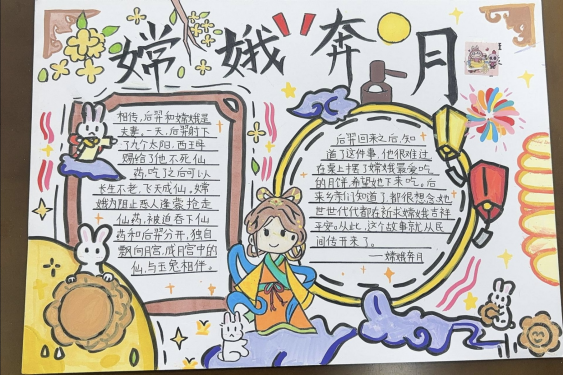 嫦娥奔月
相传，后羿和嫦娥是
夫妻，一天，后羿射下
了九个太阳，西王母
赐给了他不死仙
药，吃了之后可以人
长生不老，飞天成仙。嫦
娥为阻止恶人逢蒙抢走
仙药，被迫吞下仙
药和后羿分开，独自
飘向月宫，成月宫中的
仙，与玉兔相伴。
后羿回来之后，知
道了这件事，他很难过，
在桌上摆了嫦娥最爱吃
的月饼，希望她下来吃。后
来乡亲们知道了，都很想念她
世世代代都在祈求嫦娥吉祥
平安。从此，这个故事就从民
间传开来了。
——嫦娥奔月